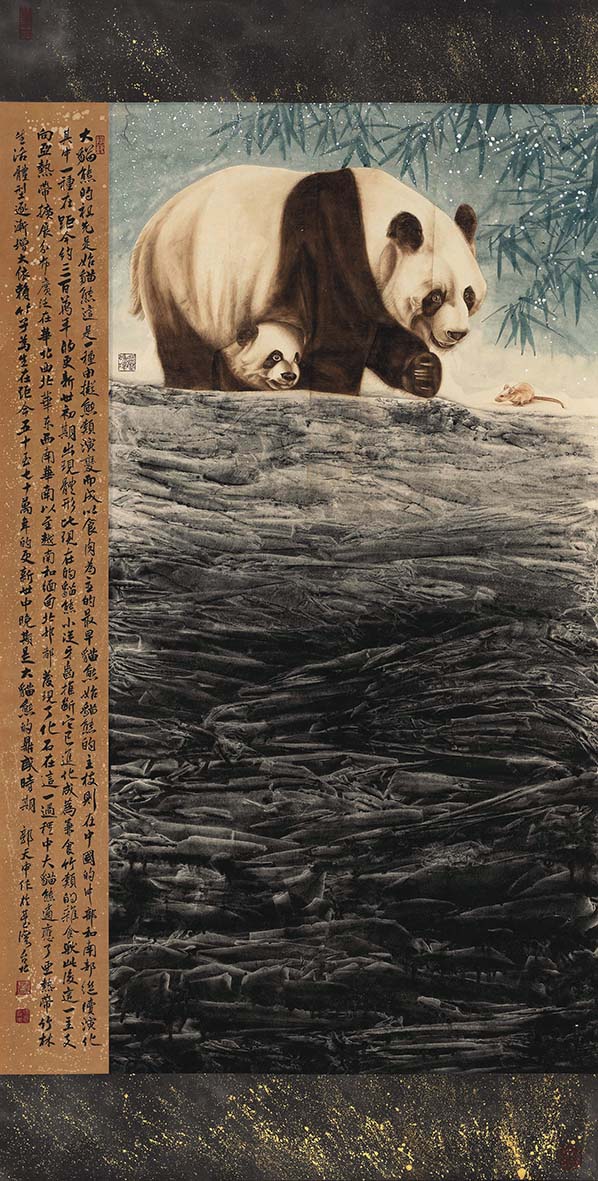 大貓熊的祖先是始貓熊這是一種由擬熊類演變而成以食肉為主的最早貓熊始貓熊的主枝則在中國的中部和南部演化
其中一種在距今約三百萬年的更新世初期出現體形比現在的貓熊小從牙齒推斷它已進化成為兼食竹類的雜食獸此後這一主支
向亞熱帶擴展分布廣泛在華北西北華東西南華南以至越南和緬甸北部都發現了化石在這一過程中大貓熊適應了亞熱帶竹林
生活體型逐漸增大依賴竹子為生在距今五十至七十萬年的更新世中晚期是大貓熊的鼎盛時期 郭天中作於台北